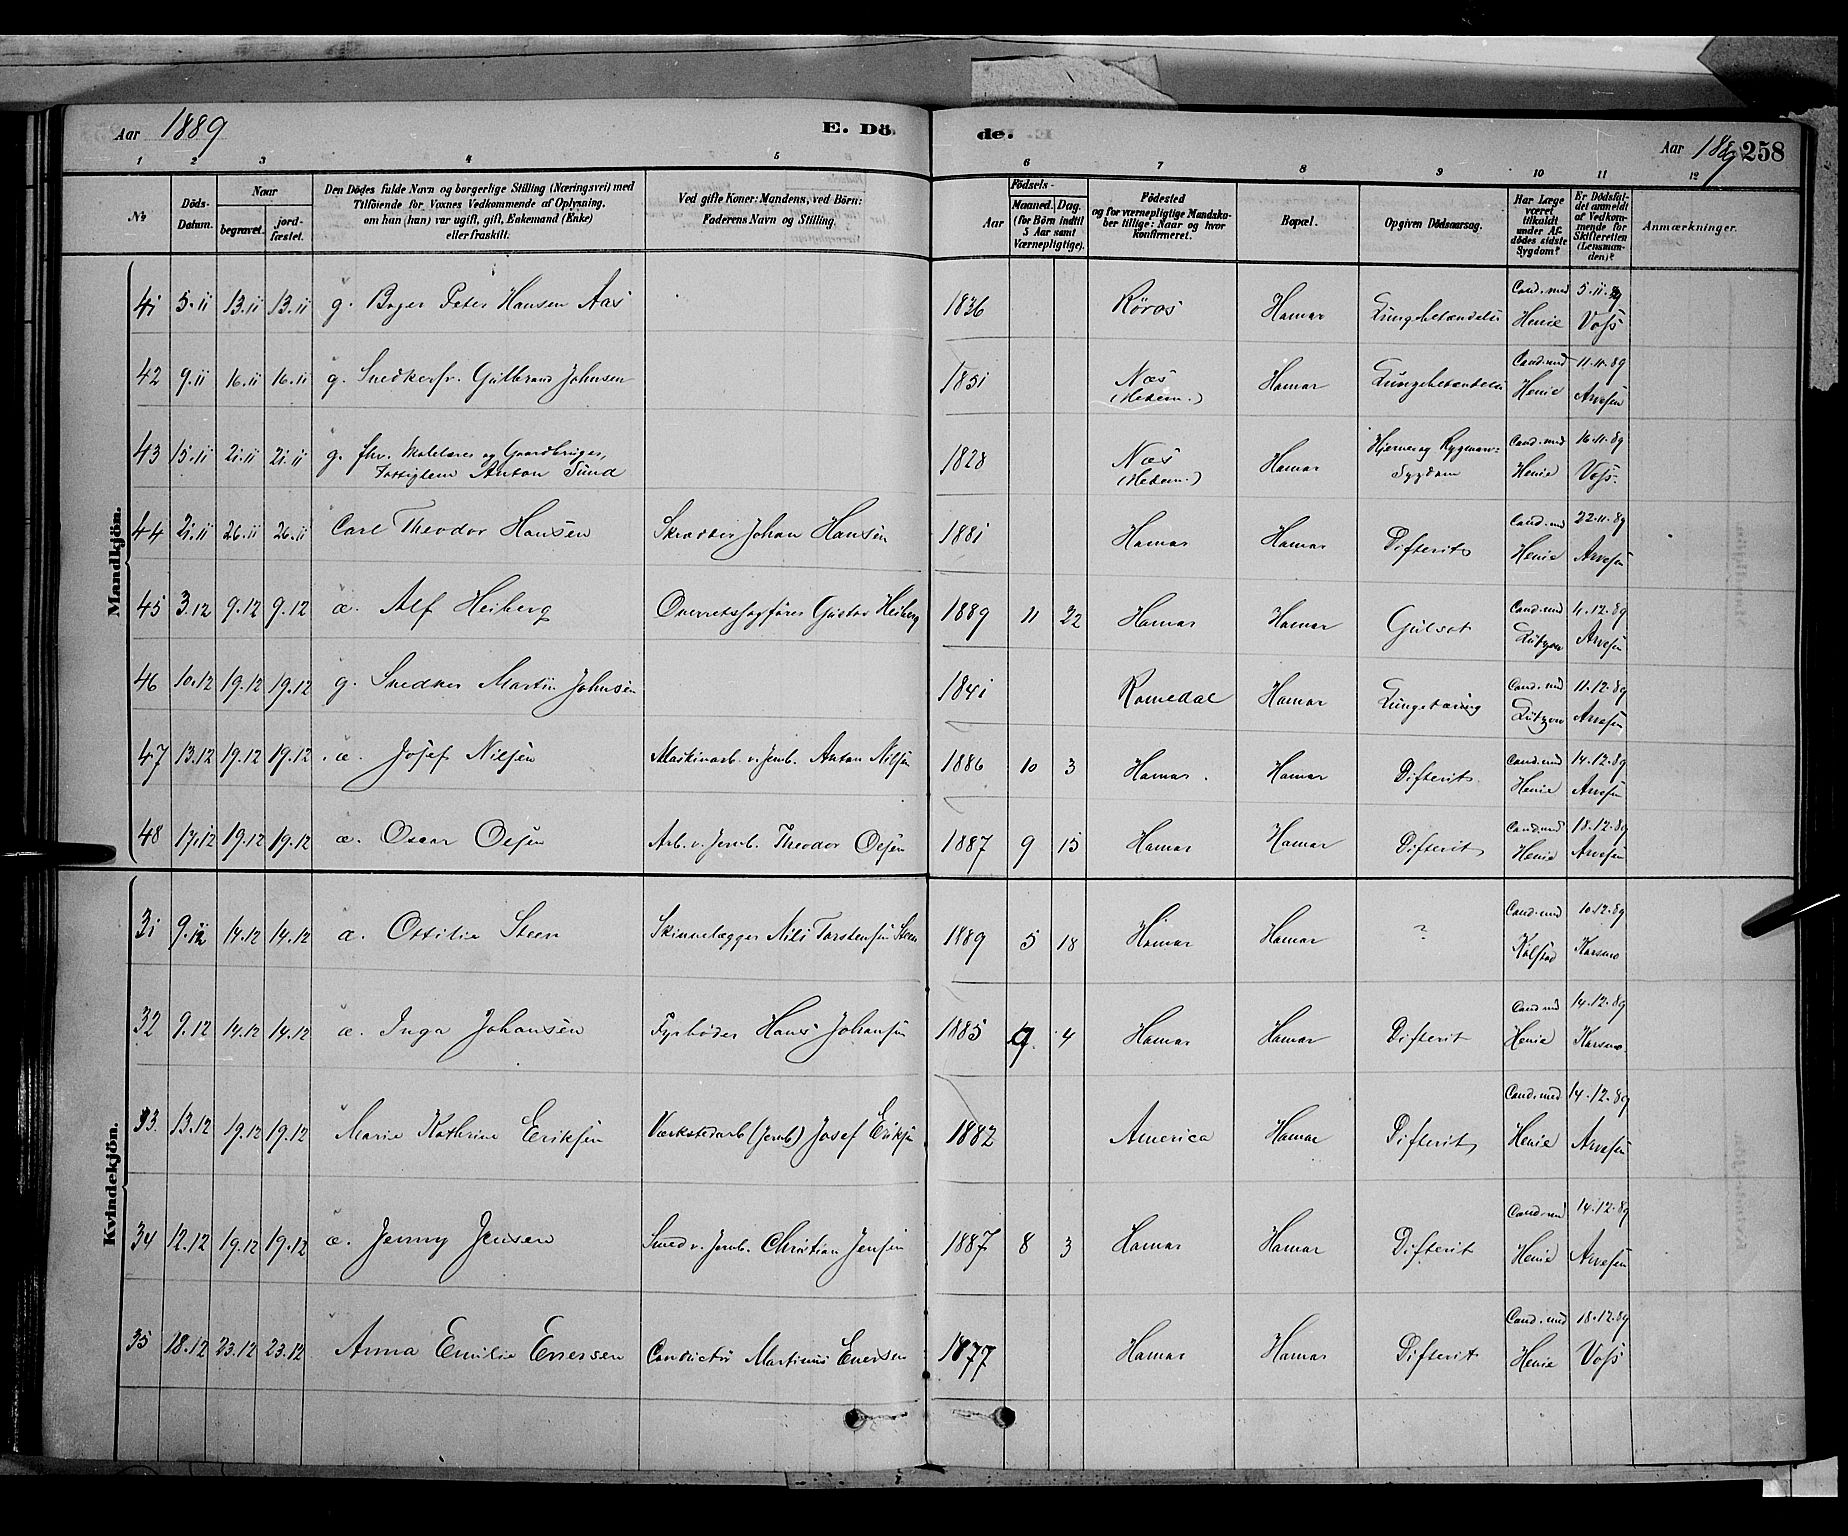 Aar 1889 E. Dö de. Aar 1889 258
1 2 3 4 5 6 7 8 9 10 11 12
No Döds-Datum. Naar begravet. jordfæstet. Den Dödes fulde Navn og borgerlige Stilling (Næringsvei) med Tilföiende for Voxnes Vedkommende af Oplysning, om han (hun) var ugift, gift, Enkemand (Enke) eller fraskilt. Ved gifte Koner: Mandens, ved Börn: Faderens Navn og Stilling. Aar Födsels- Maaned. Dag. (for Börn indtil 5 Aar samt Værnepligtige). Födested og for værnepligtige Mandskaber tillige: Naar og hvor konfirmeret. Bopæl. Opgiven Dödsaarsag. Har Læge været tilkaldt under Afdödes sidste Sygdom? Er Dödsfaldet anmeldt af Vedkommende for Skifteretten (Lensmanden)? Anmærkninger.
Mandkjön.
41 5.11 13.11 13.11 g. Peter Hansen Aas 1836 Röros Hamar Lungebetændelse Cand. med Henie 5.11.89 Voss
42 9.11 16.11 16.11 g. Snedkersv. Gulbrand Johnsen 1851 Næs (Hedem.) Hamar Lungebetændelse Cand. med Henie 11.11.89 Arvesen
43 15.11 21.11 21.11 g. fhv. og Gaardbruger, Anton Sund 1828 Næs (Hedem.) Hamar Hjerne og Rygmarv- Sygdom Cand. med Henie 16.11.89 Voss.
44 21.11 26.11 26.11 Carl Theodor Hansen Skrædder Johan Hansen 1881 Hamar Hamar Difterit Cand. med Henie 22.11.89 Arvesen
45 3.12 9.12 9.12 æ. Alf Heiberg Overretssagförer Gustav Heiberg 1889 11 22 Hamar Hamar Gulsot Cand. med Lützow 4.12.89 Arvesen
46 10.12 19.12 19.12 g. Snedker Martin Johnsen 1841 Romedal Hamar Lungetæring Cand. med Lützow 11.12.89 Arvesen
47 13.12 19.12 19.12 æ. Josef Nilsen Maskinarb. v. Jernb. Anton Nilsen 1886 10 3 Hamar. Hamar Difterit Cand. med Henie 14.12.89 Arvesen
48 17.12 19.12 19.12 æ. Oscar Olsen Arb. v. Jernb. Theodor Olsen 1887 9 15 Hamar Hamar Difterit Cand. med Henie 18.12.89 Arvesen
Kvindekjön.
31 9.12 14.12 14.12 æ. Ottilie Steen Skinnelægger Nils Torstensen Steen 1889 5 18 Hamar Hamar ? Cand. med Kolstad 10.12.89 Karsmo
32 9.12 14.12 14.12 æ. Inga Johansen Fyrböder Hans Johansen 1885 9. 4 Hamar Hamar Difterit Cand. med Henie 14.12.89 Karsmo.
33. 13.12 19.12 19.12 Marie Kathrine Eriksen Værkstedarb (Jernb) Josef Eriksen 1882 America Hamar Difterit Cand. med Henie 14.12.89 Arvesen
34 12.12 19.12 19.12 æ. Jenny Jensen Smed v. Jernb. Christian Jensen 1887 8 3 Hamar Hamar Difterit Cand. med Henie 14.12.89 Arvesen
35 18.12 23.12 23.12 Anna Emilie Enersen Conductör Martinus Enersen 1877 Hamar Hamar Difterit Cand. med Henie 18.12.89 Voss